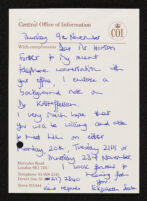 Central Office of Information
COI
Thursday 9th November
With compliments Dear Mr Horton
Further to my recent
telephone conversation with
your office, I enclose a
background note on
Dr
I very much hope that
you will be willing and able
to meet him on either
Monday 20th, Tuesday 21st or
Thursday 23rd November
I look forward to
Hercules Road
London SE1 7DU
hearing from
you.
Kind regards Elizabeth